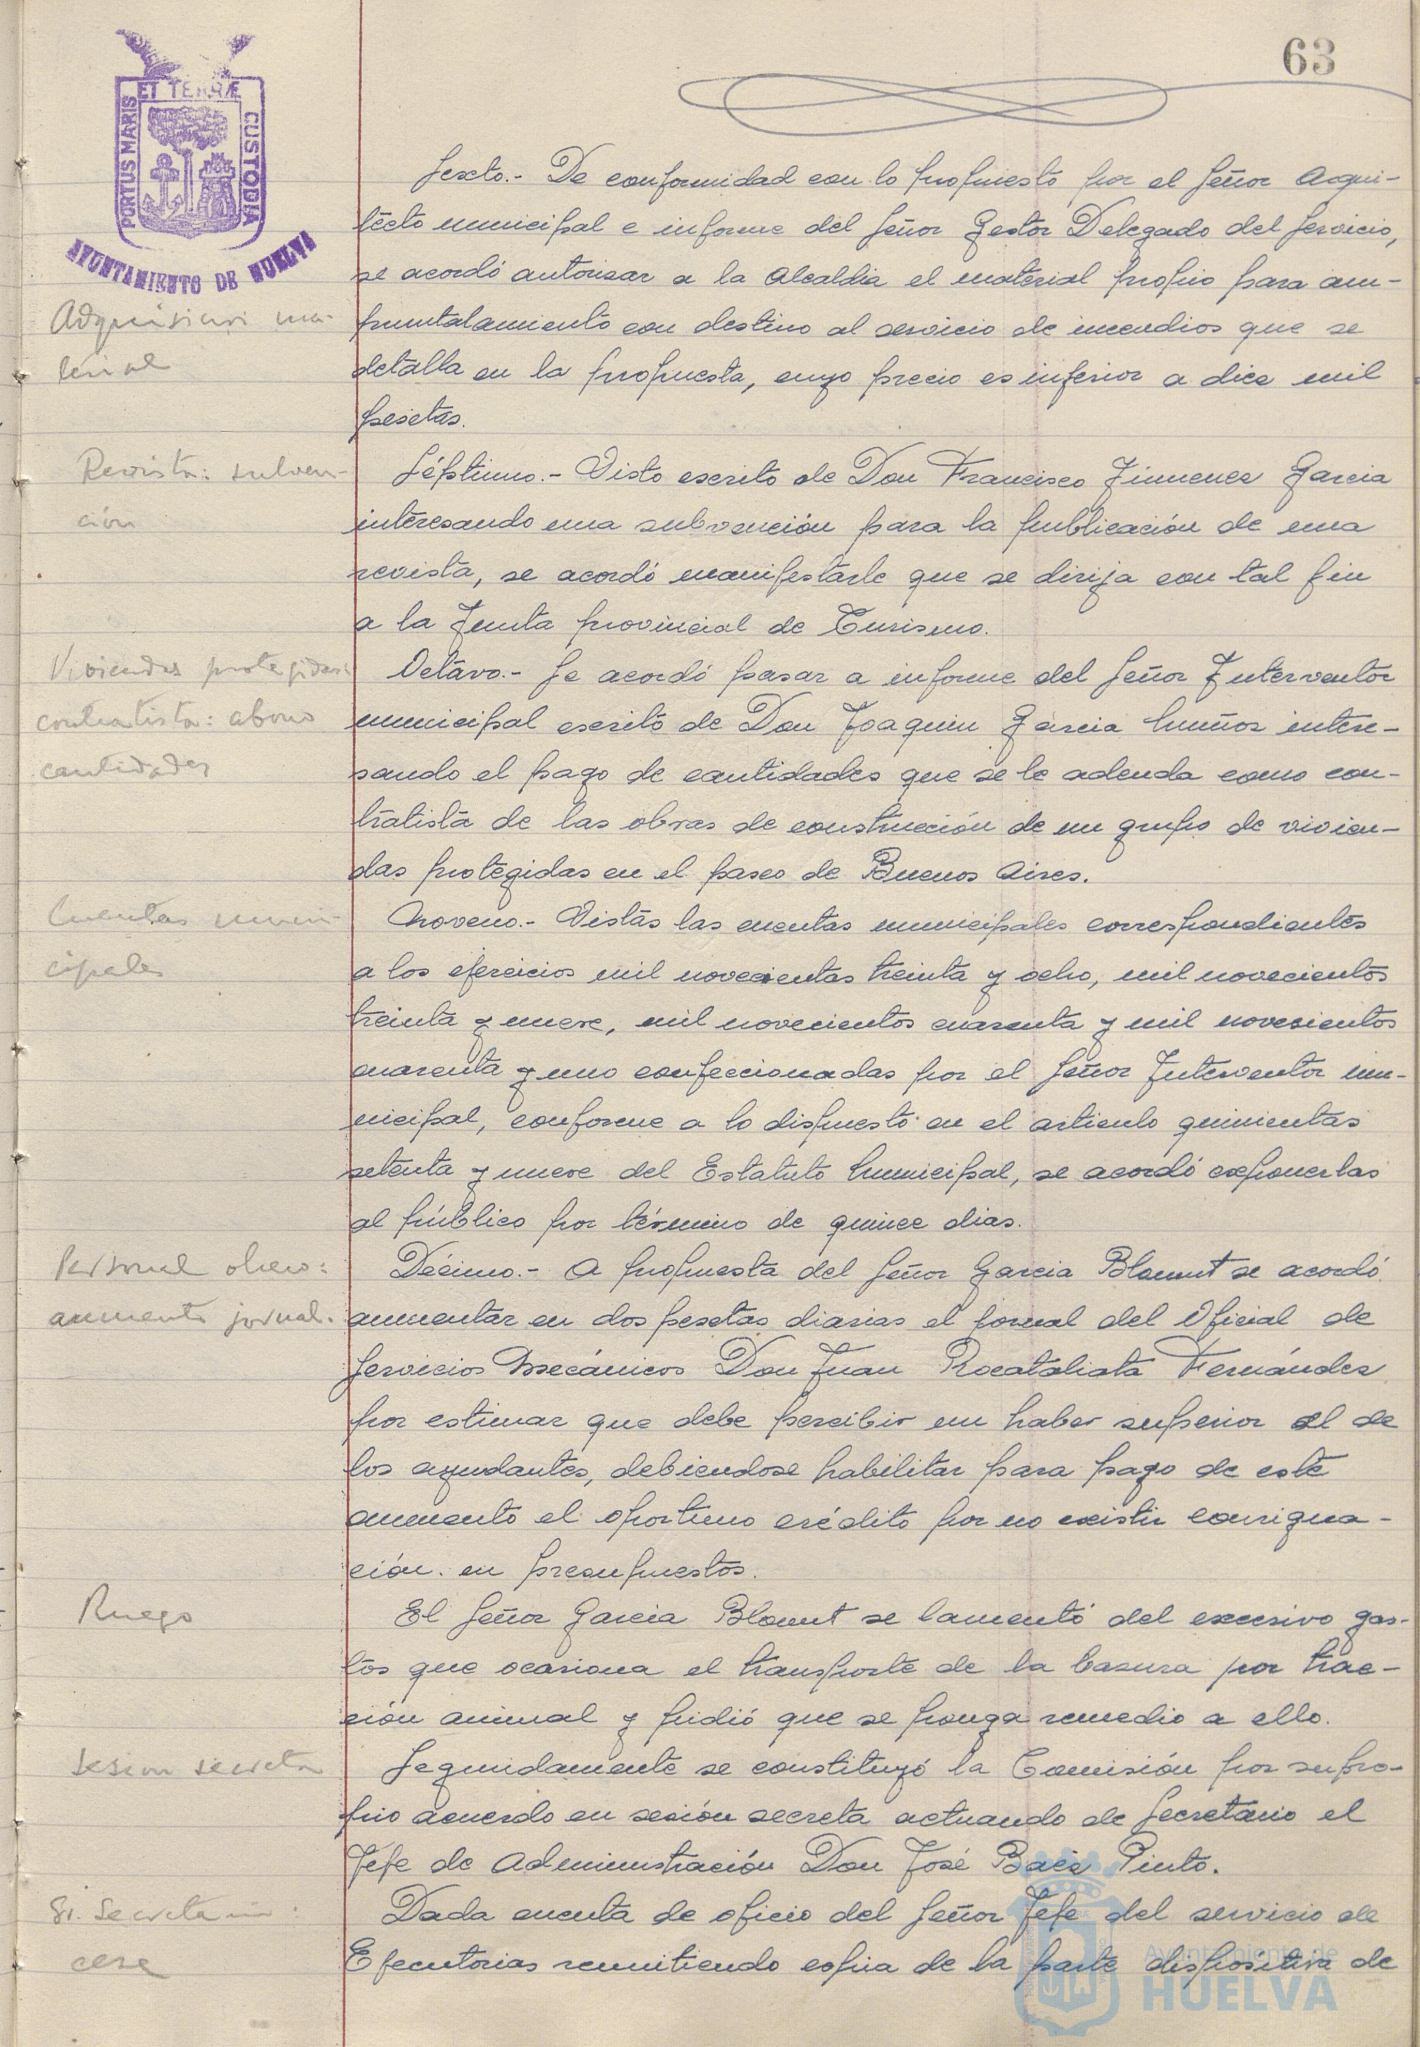 63
PORTUS MARIS ET TERRÆ CUSTODIA
AYUNTAMIENTO DE HUELVA
Sexto.- De conformidad con lo propuesto por el Señor Arqui-
tecto municipal e informe del Señor Gestor Delegado del Servicio,
se acordó autorisar a la Alcaldia el material propio para am-
Adquisicion ma-
puntalamiento con destino al servicio de incendios que se
terial
detalla en la propuesta, cuyo precio es inferior a diez mil
pesetas.
Revista: subven-
Séptimo.- Visto escrito de Don Francisco Jimenez Garcia
ción
interesando una subvención para la publicación de una
revista, se acordó manifestarle que se dirija con tal fin
a la Junta provincial de Turismo.
Viviendas protegidas:
Octavo.- Se acordó pasar a informe del Señor Interventor
contratista: abono
municipal escrito de Don Joaquin Garcia Muñoz intere-
cantidades
sando el pago de cantidades que se le adeuda como con-
tratista de las obras de construcción de un grupo de vivien-
das protegidas en el paseo de Buenos Aires.
Cuentas muni-
Noveno.- Vistas las cuentas municipales correspondientes
cipales
a los ejercicios mil novecientas treinta y ocho, mil novecientos
treinta y nueve, mil novecientos cuarenta y mil novecientos
cuarenta y uno confeccionadas por el Señor Interventor mu-
nicipal, conforme a lo dispuesto en el articulo quinientas
setenta y nueve del Estatuto Municipal, se acordó exponerlas
al público por término de quince dias.
Personal obrero:
Décimo.- A propuesta del Señor Garcia Blaunt se acordó
aumento jornal.
aumentar en dos pesetas diarias el jornal del Oficial de
Servicios Mecánicos Don Juan Rocataliata Fernández
por estimar que debe percibir un haber superior al de
los ayudantes, debiendose habilitar para pago de este
aumento el oportuno crédito por no existir consigna-
ción en presupuestos.
Ruego
El Señor Garcia Blaunt se lamentó del excesivo gas-
tos que ocasiona el transporte de la basura por trac-
ción animal y pidió que se ponga remedio a ello.
Sesion secreta
Seguidamente se constituyó la Comisión por su pro-
pio acuerdo en sesión secreta actuando de Secretario el
Jefe de Administración Don José Baez Pinto.
Sr. Secretario:
Dada cuenta de oficio del Señor Jefe del servicio de
cese
Ejecutorias remitiendo copia de la parte dispositiva de
Ayuntamiento de
HUELVA